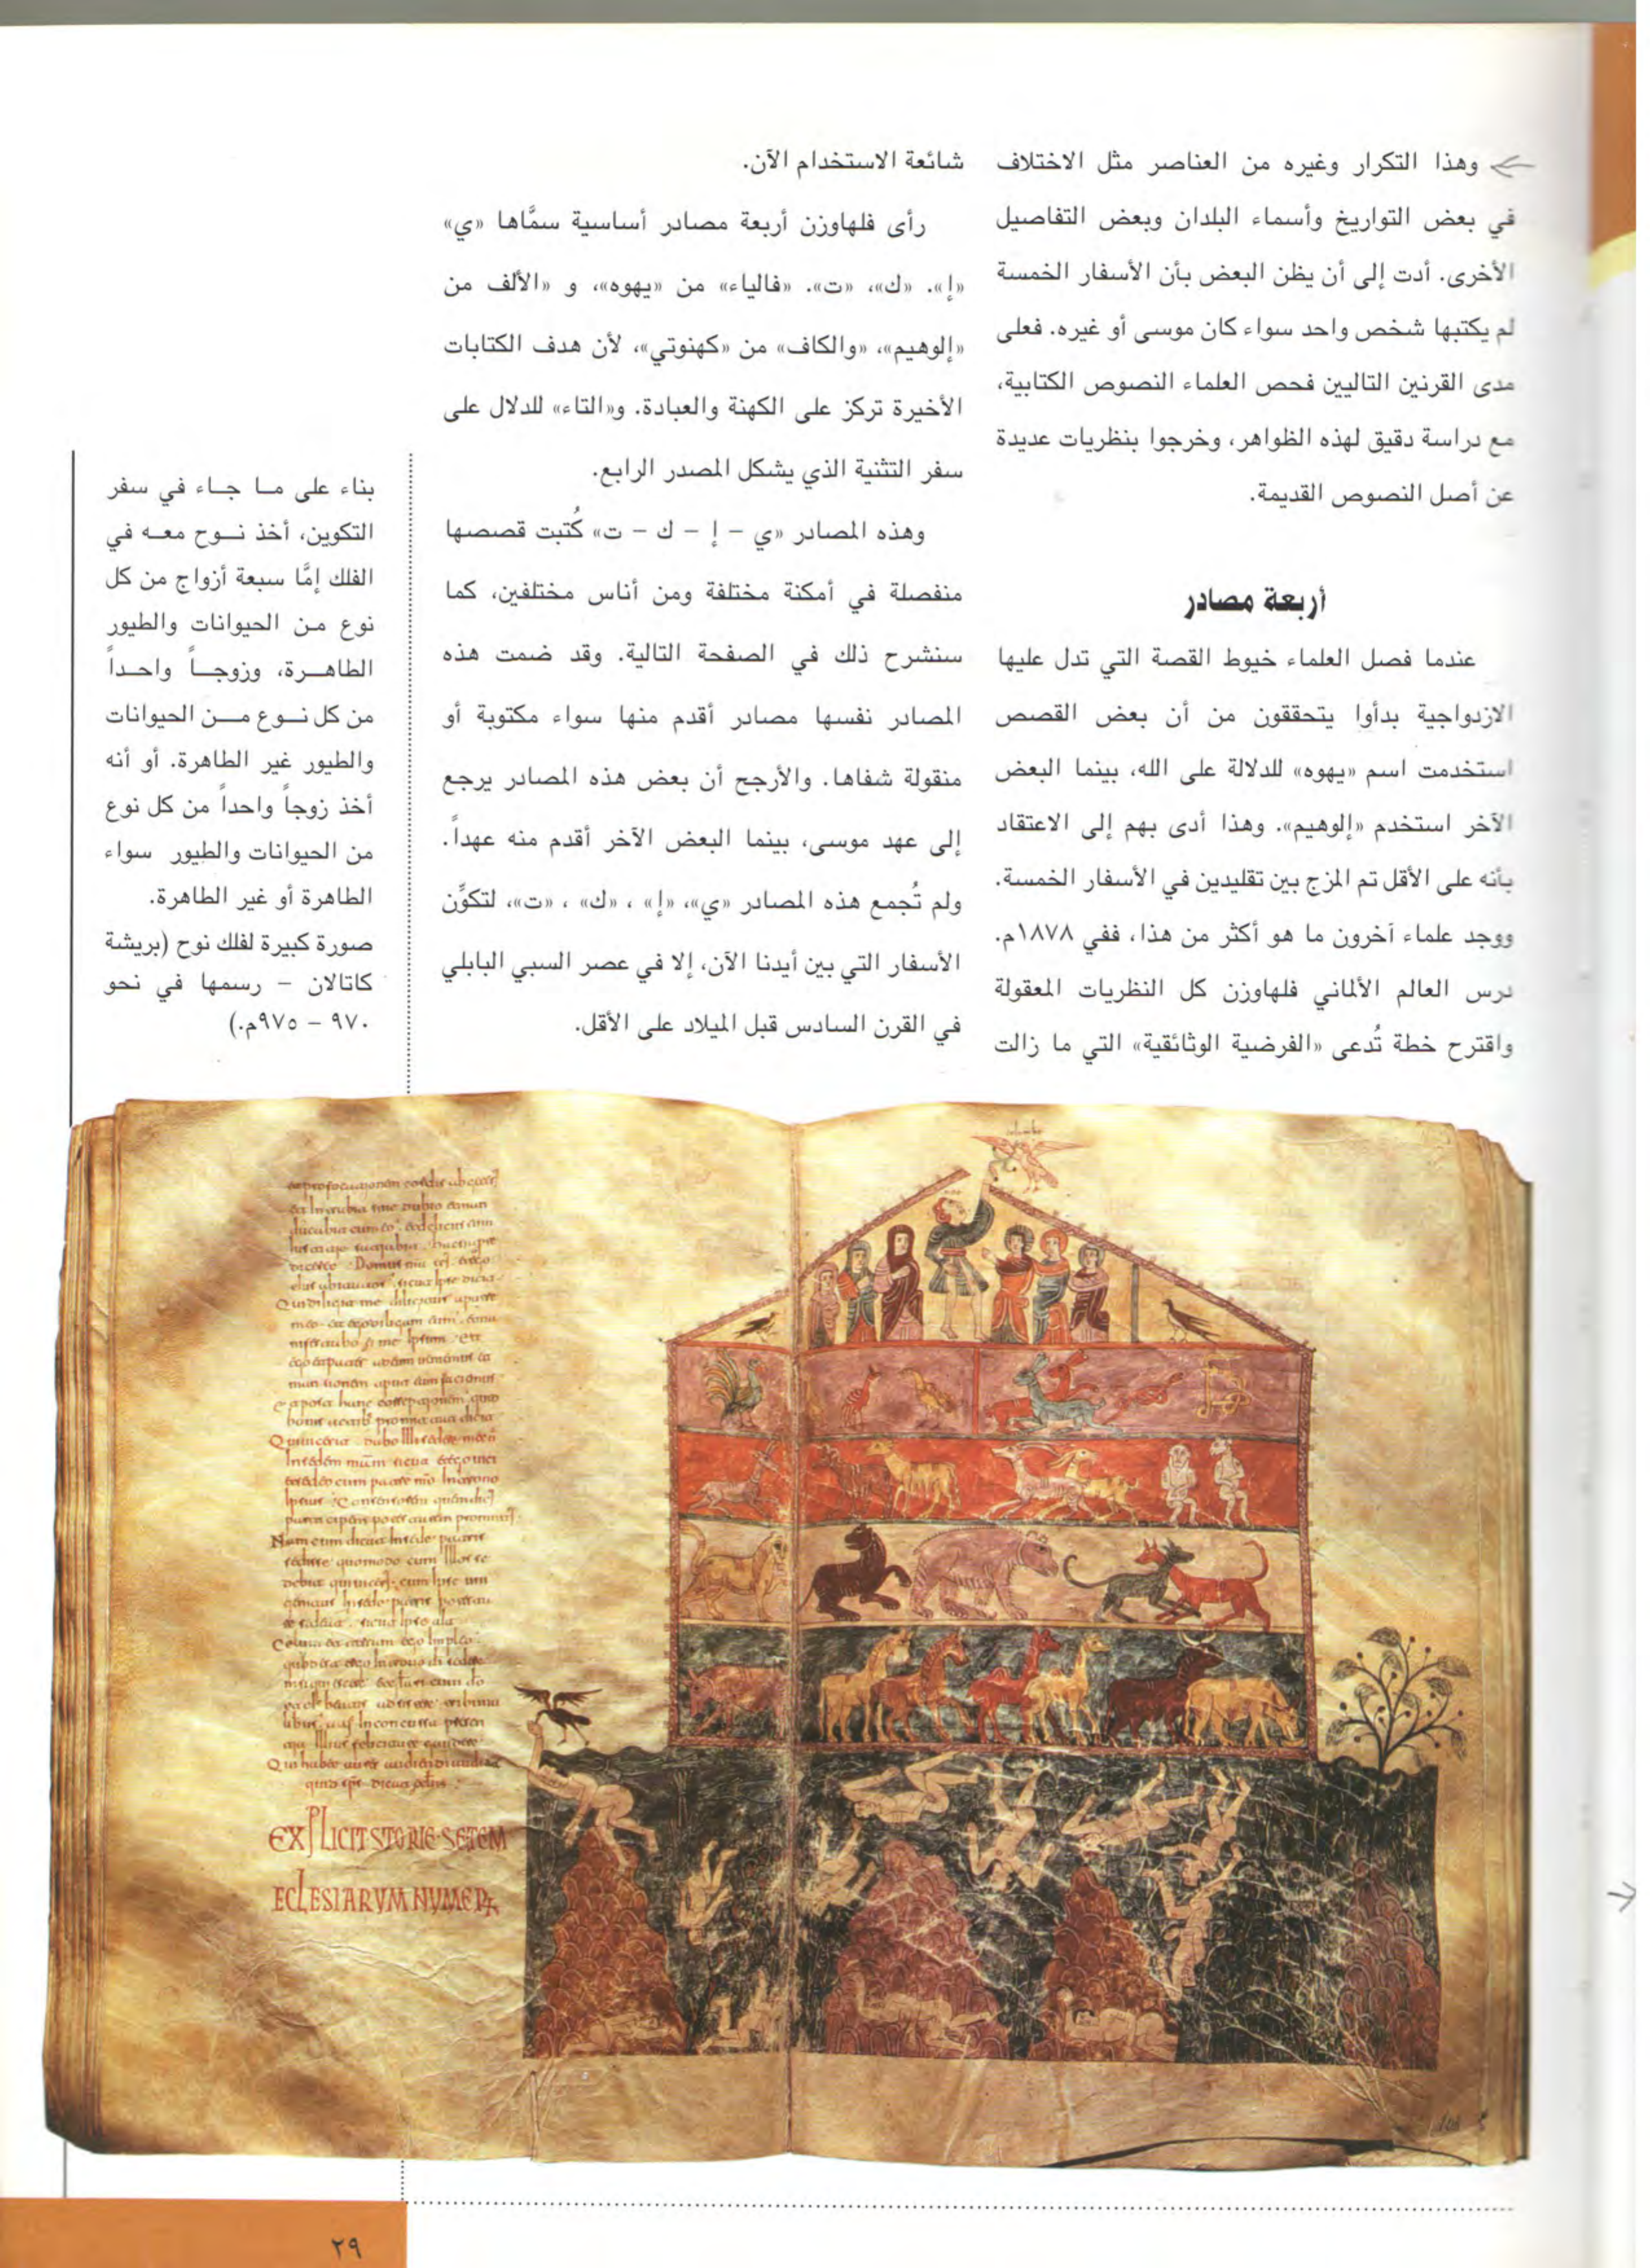 وهذا التكرار وغيره من العناصر مثل الاختلاف
في بعض التواريخ وأسماء البلدان وبعض التفاصيل
الأخرى. أدت إلى أن يظن البعض بأن الأسفار الخمسة
لم يكتبها شخص واحد سواء كان موسى أو غيره. فعلى
مدى القرنين التاليين فحص العلماء النصوص الكتابية،
مع دراسة دقيق لهذه الظواهر، وخرجوا بنظريات عديدة
عن أصل النصوص القديمة.
أربعة مصادر
عندما فصل العلماء خيوط القصة التي تدل عليها
الازدواجية بدأوا يتحققون من أن بعض القصص
استخدمت اسم «يهوه» للدلالة على الله، بينما البعض
الآخر استخدم «إلوهيم». وهذا أدى بهم إلى الاعتقاد
بأنه على الأقل تم المزج بين تقليدين في الأسفار الخمسة.
ووجد علماء آخرون ما هو أكثر من هذا، ففي ١٨٧٨م.
درس العالم الألماني فلهاوزن كل النظريات المعقولة
واقترح خطة تُدعى «الفرضية الوثائقية» التي ما زالت
شائعة الاستخدام الآن.
رأى فلهاوزن أربعة مصادر أساسية سمَّاها «ي»
«إ». «ك»، «ت». «فالياء» من «يهوه»، و «الألف من
«إلوهيم»، «والكاف» من «كهنوتي»، لأن هدف الكتابات
الأخيرة تركز على الكهنة والعبادة. و«التاء» للدلال على
سفر التثنية الذي يشكل المصدر الرابع.
وهذه المصادر «ي – إ – ك – ت» كُتبت قصصها
منفصلة في أمكنة مختلفة ومن أناس مختلفين، كما
سنشرح ذلك في الصفحة التالية. وقد ضمت هذه
المصادر نفسها مصادر أقدم منها سواء مكتوبة أو
منقولة شفاها. والأرجح أن بعض هذه المصادر يرجع
إلى عهد موسى، بينما البعض الآخر أقدم منه عهداً.
ولم تُجمع هذه المصادر «ي»، «إ» ، «ك» ، «ت»، لتكوِّن
الأسفار التي بين أيدنا الآن، إلا في عصر السبي البابلي
في القرن السادس قبل الميلاد على الأقل.
بناء على ما جاء في سفر
التكوين، أخذ نوح معه في
الفلك إمَّا سبعة أزواج من كل
نوع من الحيوانات والطيور
الطاهرة، وزوجاً واحداً
من كل نوع من الحيوانات
والطيور غير الطاهرة. أو أنه
أخذ زوجاً واحداً من كل نوع
من الحيوانات والطيور سواء
الطاهرة أو غير الطاهرة.
صورة كبيرة لفلك نوح (بريشة
كاتالان – رسمها في نحو
٩٧٠ – ٩٧٥م.)
EXPLICIT STORIE SETEM
ECLESIARVM NVMER
٢٩